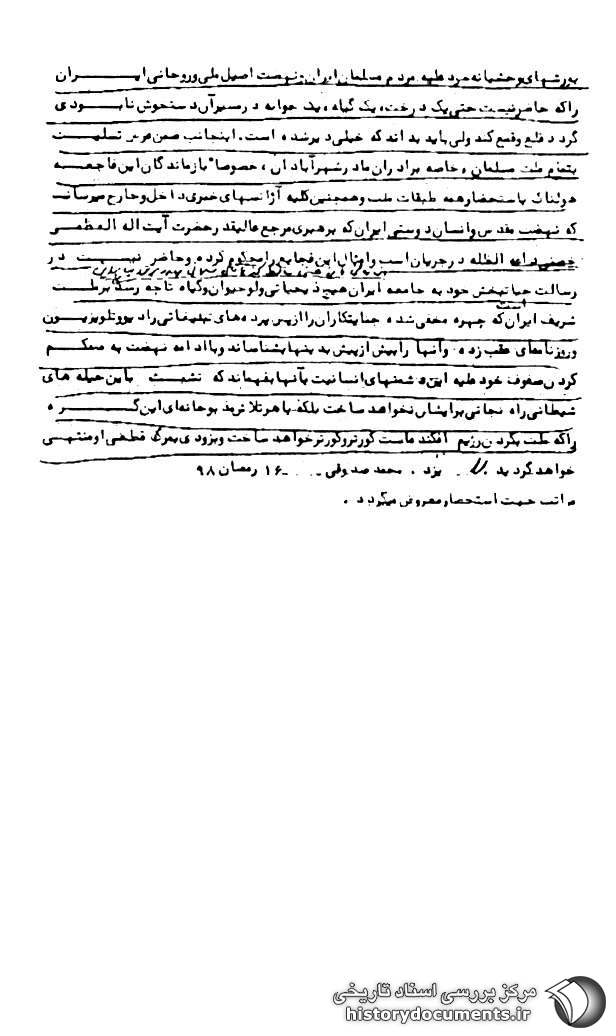 یورشهای وحشیانه مزد علیه مردم مسلمان ایران و نهضت اصیل ملی و روحانی ایـــــران
را که حاضر نیست حتی یک درخت، یک گیاه، یک جوانه در مسیر آن دستخوش نابـــودی
گردد قلع و قمع کند ولی باید بداند که خیلی دیر شده است. اینجانب ضمن عرض تسلیت
بتمام ملت مسلمان، خاصه برادران مادر شهر آبادان، خصوصا" بازماندگان این فاجعـــه
هولناک باستحضار همه طبقات ملت و همچنین کلیه آژانسهای خبری داخل و خارج میرسانـد
که نهضت مقدس و انسان دوستی ایران که برهبری مرجع عالیقدر حضرت آیت اله العظمـی
خمینی دامه الظله در جریان است و امثال این فجایع را محکوم کرده و حاضر نیـــست در
رسالت حیاتبخش خود به جامعه ایران هیچ ذیحیاتی ولو حیوان و گیاه تا چه رسد بر ملـت
شریف ایران که چهره مخفی شده جنایتکاران را از پس پرده های تبلیغاتی رادیو و تلویزیـــون
و روزنامه‌های زده و آنها را بیش از پیش بدینها بشناساند و با ادامه نهضت به محکـــم
کردن صفوف خود علیه این دشمنهای انسانیت بآنها بفهماند که تشبـــث باین حیله های
شیطانی راه نجاتی برایشان نخواهد ساخت بلکه با هر تلاش مذبوحانه‌ای این گـــــره
را که ملت بگردن رژیم افکنده است کورتر و کورتر خواهد ساخت و بزودی بمرگ قطعی او منتهـی
خواهد گردید. یزد . محمد صدوقی ـ ـ ۱۶ رمضان ۹۸
مراتب جهت استحضار معروض میگردد .
مرکز بررسی اسناد تاریخی
historydocuments.ir